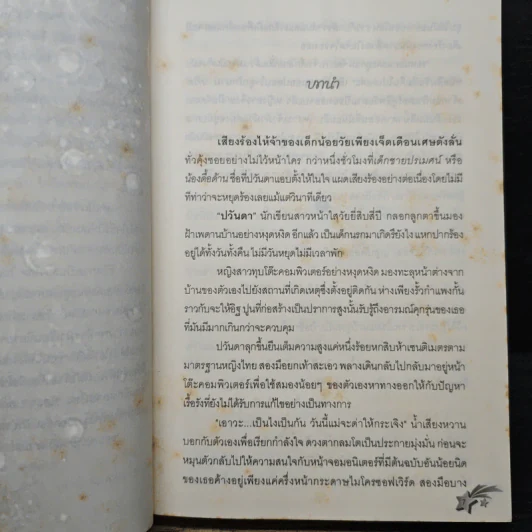 บทนำ
เสียงร้องไห้จ้าของเด็กน้อยวัยเพียงเจ็ดเดือนเศษดังลั่น
ทั่วคุ้งซอยอย่างไม่ไว้หน้าใคร กว่าหนึ่งชั่วโมงที่เด็กชายปรเมศน์ หรือ
น้องตื้อด้าน ชื่อที่ปวันดาแอบตั้งให้ในใจ แผดเสียงร้องอย่างต่อเนื่องโดยไม่มี
ทีท่าว่าจะหยุดร้องเลยแม้แต่วินาทีเดียว
“ปวันดา” นักเขียนสาวหน้าใสวัยยี่สิบสี่ปี กลอกลูกตาขึ้นมอง
ฝ้าเพดานบ้านอย่างหงุดหงิด อีกแล้ว เป็นเด็กนรกมาเกิดรึยังไง แหกปากร้อง
อยู่ได้ทั้งวันทั้งคืน ไม่มีวันหยุดไม่มีเวลาพัก
หญิงสาวทุบโต๊ะคอมพิวเตอร์อย่างหงุดหงิด มองทะลุหน้าต่างจาก
บ้านของตัวเองไปยังสถานที่เกิดเหตุซึ่งตั้งอยู่ติดกัน ห่างเพียงรั้วกำแพงกั้น
ราวกับจะให้อิฐ ปูนที่ก่อสร้างเป็นปราการสูงนั้นรับรู้ถึงอารมณ์คุกรุ่นของเธอ
ที่มันมีมากเกินกว่าจะควบคุม
ปวันดาลุกขึ้นยืนเต็มความสูงแค่หนึ่งร้อยหกสิบห้าเซนติเมตรตาม
มาตรฐานหญิงไทย สองมือยกเท้าสะเอว พลางเดินกลับไปกลับมาอยู่หน้า
โต๊ะคอมพิวเตอร์เพื่อใช้สมองน้อยๆ ของตัวเองหาทางออกให้กับปัญหา
เรื้อรังที่ยังไม่ได้รับการแก้ไขอย่างเป็นทางการ
“เอาวะ...เป็นไงเป็นกัน วันนี้แม่จะด่าให้กระเจิง” น้ำเสียงหวาน
บอกกับตัวเองเพื่อเรียกกำลังใจ ดวงตากลมโตเป็นประกายมุ่งมั่น ก่อนจะ
หมุนตัวกลับไปให้ความสนใจกับหน้าจอมอนิเตอร์ที่มีต้นฉบับอันน้อยนิด
ของเธอค้างอยู่เพียงแค่ครึ่งหน้ากระดาษไมโครซอฟเวิร์ด สองมือบาง